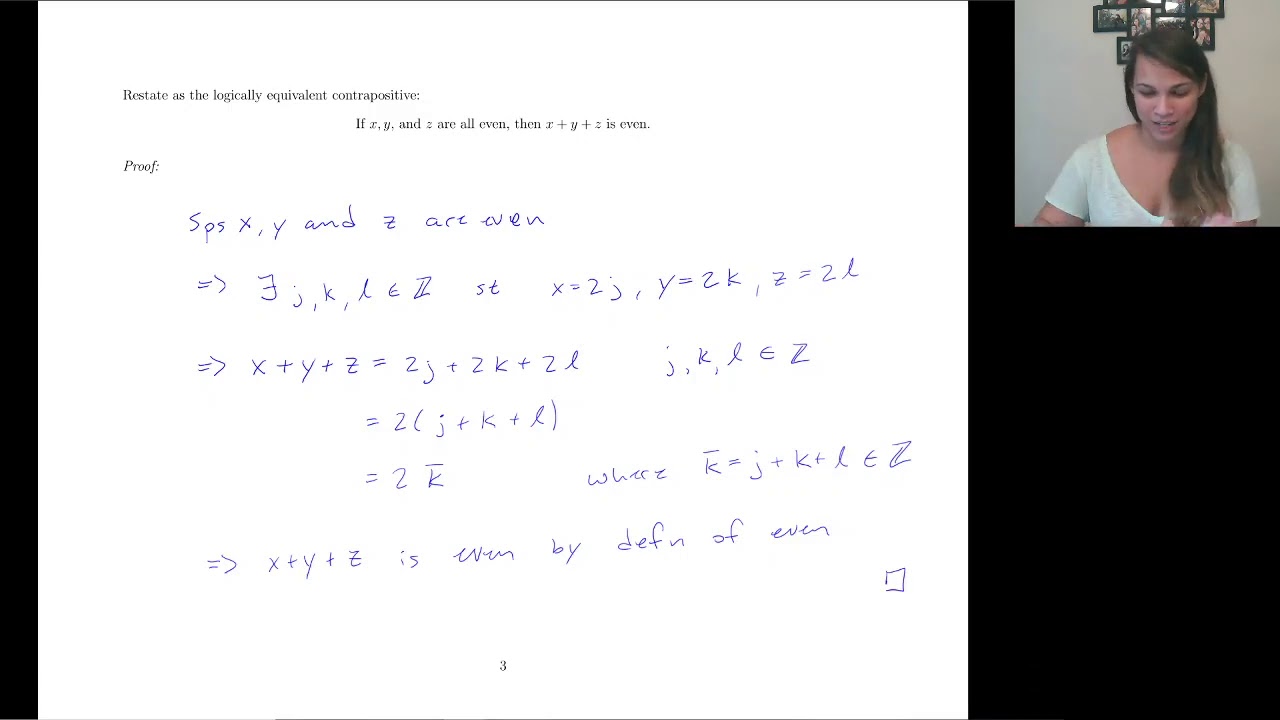 Restate as the logically equivalent contrapositive:
If x, y, and z are all even, then x + y + z is even.
Proof:
Sps x, y and z are even
=> ∃ j, k, l ∈ ℤ st x = 2j, y = 2k, z = 2l
=> x + y + z = 2j + 2k + 2l j, k, l ∈ ℤ
= 2(j + k + l)
= 2 k̄ where k̄ = j + k + l ∈ ℤ
=> x + y + z is even by defn of even
□
3